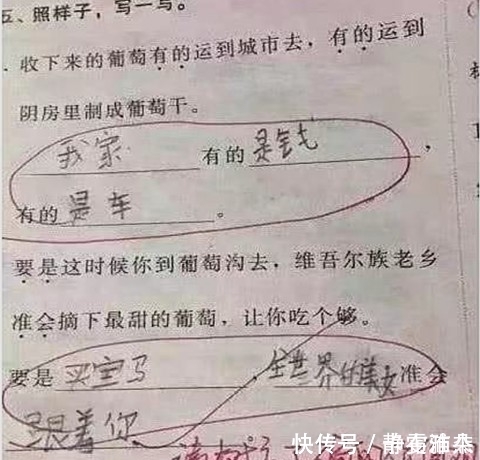 五、照样子，写一写。
. 收下来的葡萄有的运到城市去，有的运到
阴房里制成葡萄干。
我家有的是钱，
有的是车。
要是这时候你到葡萄沟去，维吾尔族老乡
准会摘下最甜的葡萄，让你吃个够。
要是买宝马，全世界的美女准会
跟着你
快传号／